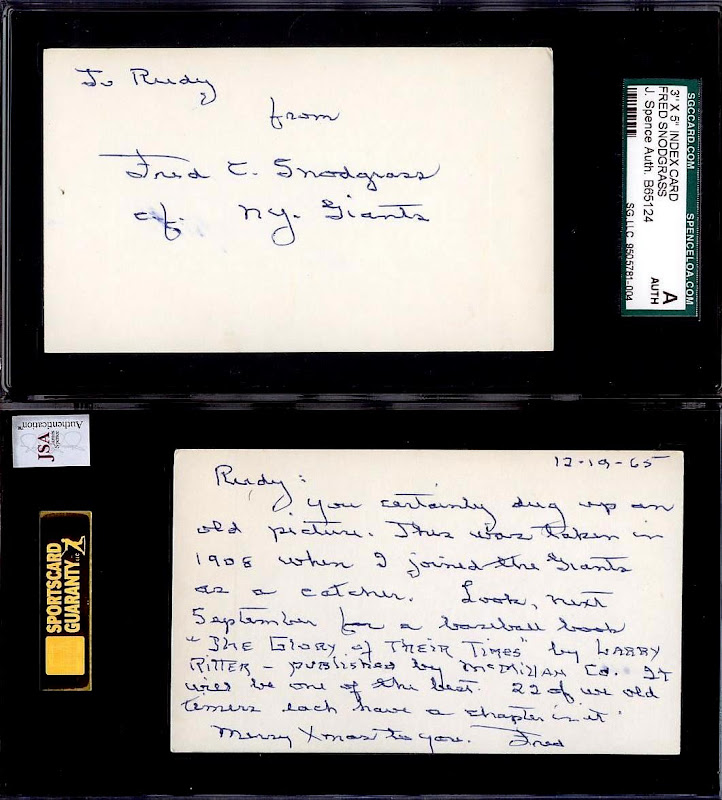 To Rudy
from
Fred C. Snodgrass
c.f. N.Y. Giants
SGCCARD.COM SPENCELOA.COM
3" X 5" INDEX CARD
FRED SNODGRASS
J. Spence Auth. B65124
A
AUTH
SG LLC 9505781-004
Authentication™
James Spence
JSA
SPORTSCARD
GUARANTY LLC
12-19-65
Rudy:
You certainly dug up an
old picture. This was taken in
1908 when I joined the Giants
as a catcher. Look, next
September for a baseball book
"THE GLORY of THEIR TIMES" by LARRY
RITTER - published by McMillan Co. It
will be one of the best. 22 of we old
timers each have a chapter in it.
Merry Xmas to you. Fred